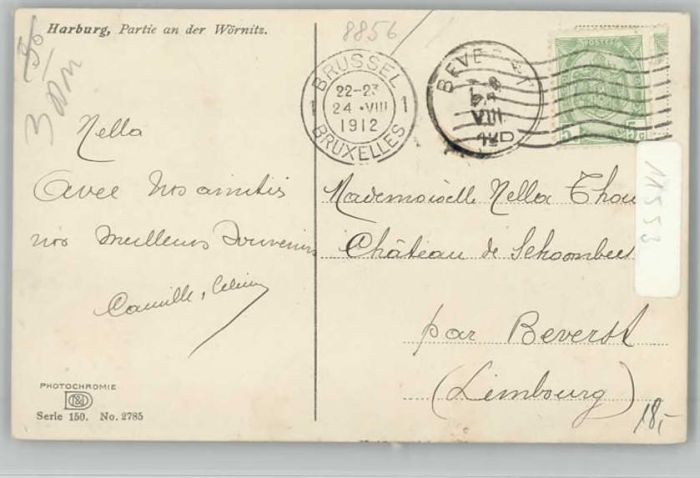 Harburg, Partie an der Wörnitz.
8856
3 DM
BRUSSEL
22-23
1 24 ·VIII 1
1912
BRUXELLES
BEVE
VIII
POSTES
5
5
11553
Nella
Avec nos amitiés
nos meilleurs souvenirs
Camille,
Mademoiselle Nella Thou
Château de Schoonbee
par Beverst
(Limbourg)
18,-
PHOTOCHROMIE
Serie 150. No. 2785